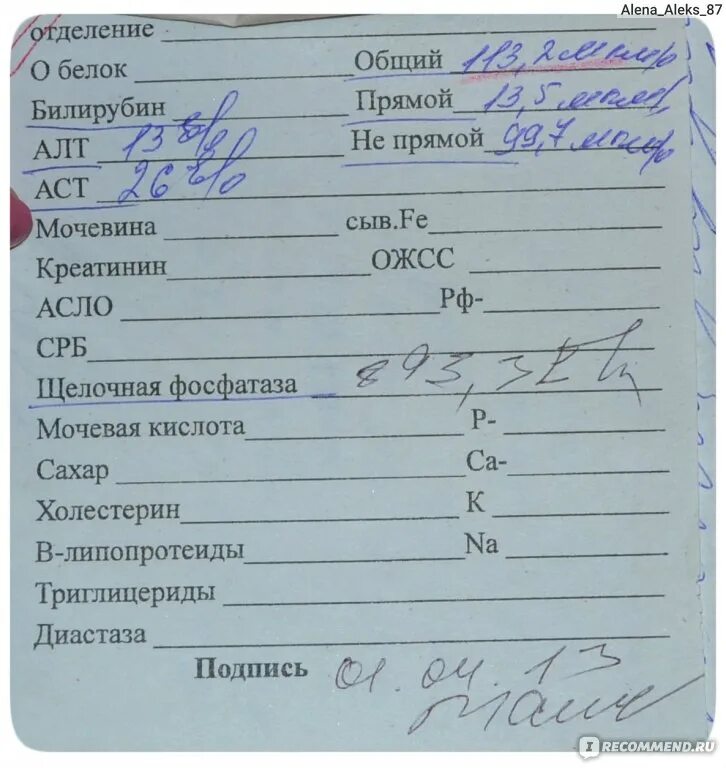 Alena_Aleks_87
отделение
О белок Общий 113,2 мкм/
Билирубин Прямой 13,5 мкм/
АЛТ 13 Не прямой 99,7 мкм/
АСТ 26
Мочевина сыв.Fe
Креатинин ОЖСС
АСЛО Рф-
СРБ
Щелочная фосфатаза 893,3
Мочевая кислота Р-
Сахар Са-
Холестерин К
В-липопротеиды Na
Триглицериды
Диастаза
Подпись 01.04.13
IRECOMMEND.RU